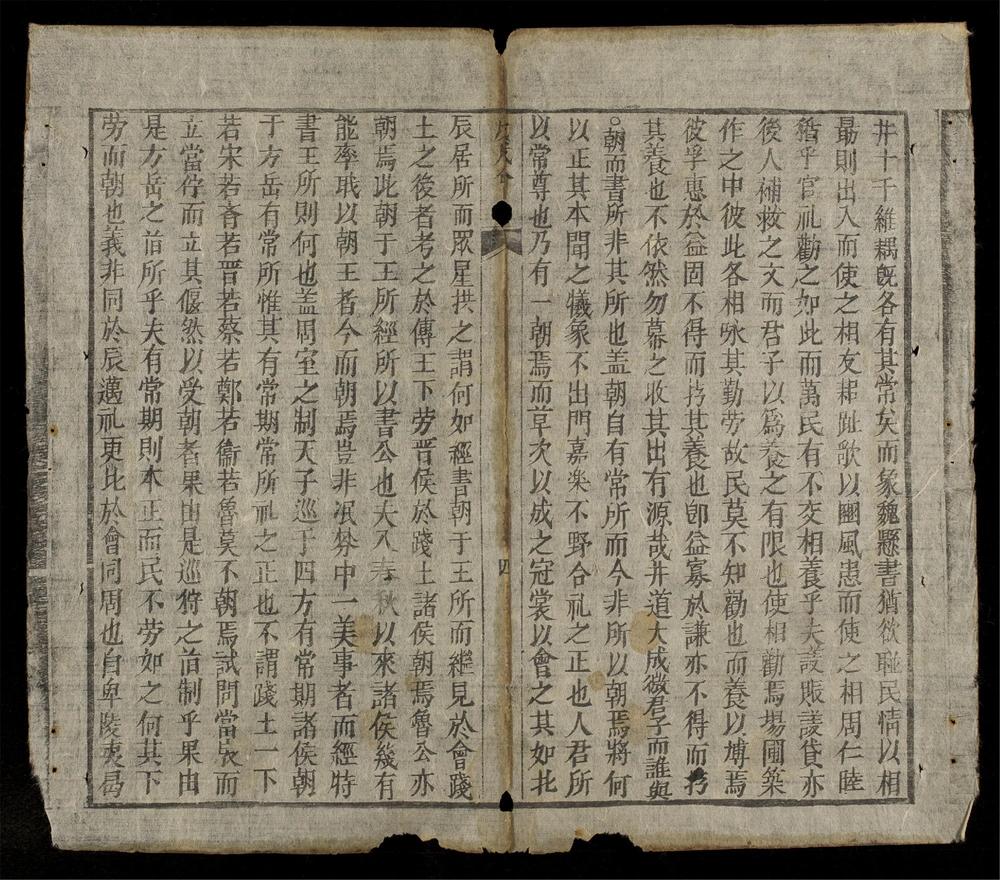 井十千維耦旣各有其常矣而象魏懸書猶欲聯民情以相
最則出入而使之相友耜趾歌以豳風患而使之相周仁睦
稽乎官礼勸之如此而萬民有不交相養乎夫議賑議貸亦
後人補救之文而君子以爲養之有限也使相勸焉場圃築
作之中彼此各相咏其勤劳故民莫不知勸也而養以博焉
彼孚惠於益固不得而扐其養也卽益寡於謙亦不得而扐
其養也不依然勿幕之收其出有源哉井道大成微君子而誰與
○朝而書所非其所也盖朝自有常所而今非所以朝焉將何
以正其本聞之犧象不出門嘉楽不野合礼之正也人君所
以常尊也乃有一朝焉而草次以成之冠裳以會之其如北
四
辰居所而眾星拱之謂何如經書朝于王所而繼見於會踐
土之後者考之於傳王下劳晋侯於踐土諸侯朝焉魯公亦
朝焉此朝于王所經所以書公也夫入春秋以來諸侯幾有
能率職以朝王者今而朝焉豈非泯棼中一美事者而經特
書王所則何也盖周室之制天子巡于四方有常期諸侯朝
于方岳有常所惟其有常期常所礼之正也不謂踐土一下
若宋若斉若晋若蔡若鄭若衞若魯莫不朝焉試問當扆而
立當佇而立其偃然以受朝者果由是巡狩之旧制乎果由
是方岳之旧所乎夫有常期則本正而民不劳如之何其下
劳而朝也義非同於辰邁礼更比於會同周也自卑陵夷曷